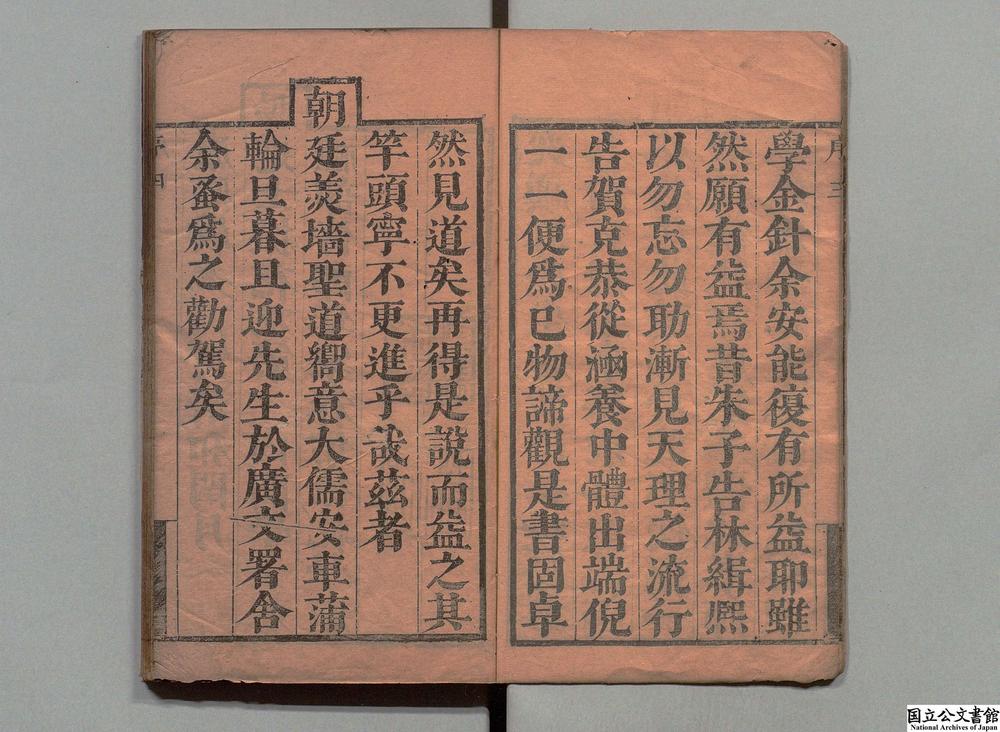 序 三
學金針余安能復有所益耶雖
然願有益焉昔朱子告林緝熙
以勿忘勿助漸見天理之流行
告賀克恭從涵養中體出端倪
一一便爲已物諦觀是書固卓
然見道矣再得是說而益之其
竿頭寧不更進乎哉茲者
朝廷羙墻聖道嚮意大儒安車蒲
輪旦暮且迎先生於廣文署舍
余蚤爲之勸駕矣
序 四
国立公文書館
National Archives of Japan